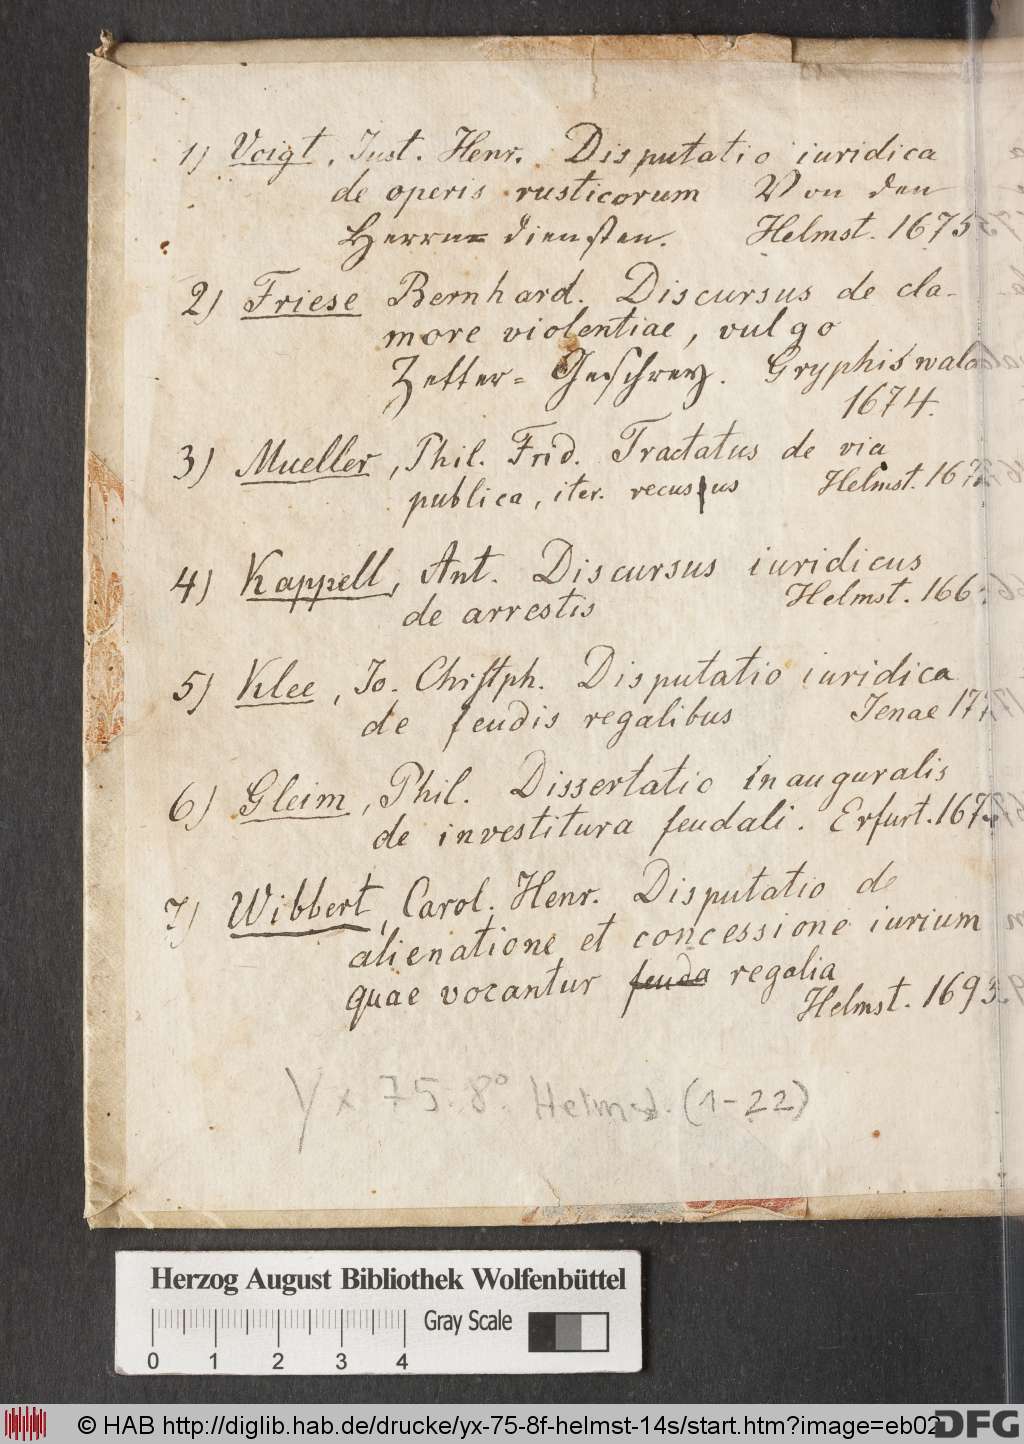 1) Voigt, Just. Henr. Disputatio iuridica
de operis rusticorum Von den
Herrn= diensten. Helmst. 1675
2) Friese Bernhard. Discursus de cla-
more violentiae, vulgo
Zetter= Geschrey. Gryphiswald
1674.
3) Mueller, Phil. Frid. Tractatus de via
publica, iter. recusus Helmst.
4) Kappell, Ant. Discursus iuridicus
de arrestis Helmst.
5) Klee, Jo. Christph. Disputatio iuridica
de feudis regalibus Jenae
6) Gleim, Phil. Dissertatio inauguralis
de investitura feudali. Erfurt.
7) Wibbert, Carol. Henr. Disputatio de
alienatione et concessione iurium
quae vocantur feuda regalia
Helmst. 1693
Yx 75. 8° Helmst. (1-22)
Herzog August Bibliothek Wolfenbüttel
Gray Scale
0 1 2 3 4
© HAB http://diglib.hab.de/drucke/yx-75-8f-helmst-14s/start.htm?image=eb02
DFG